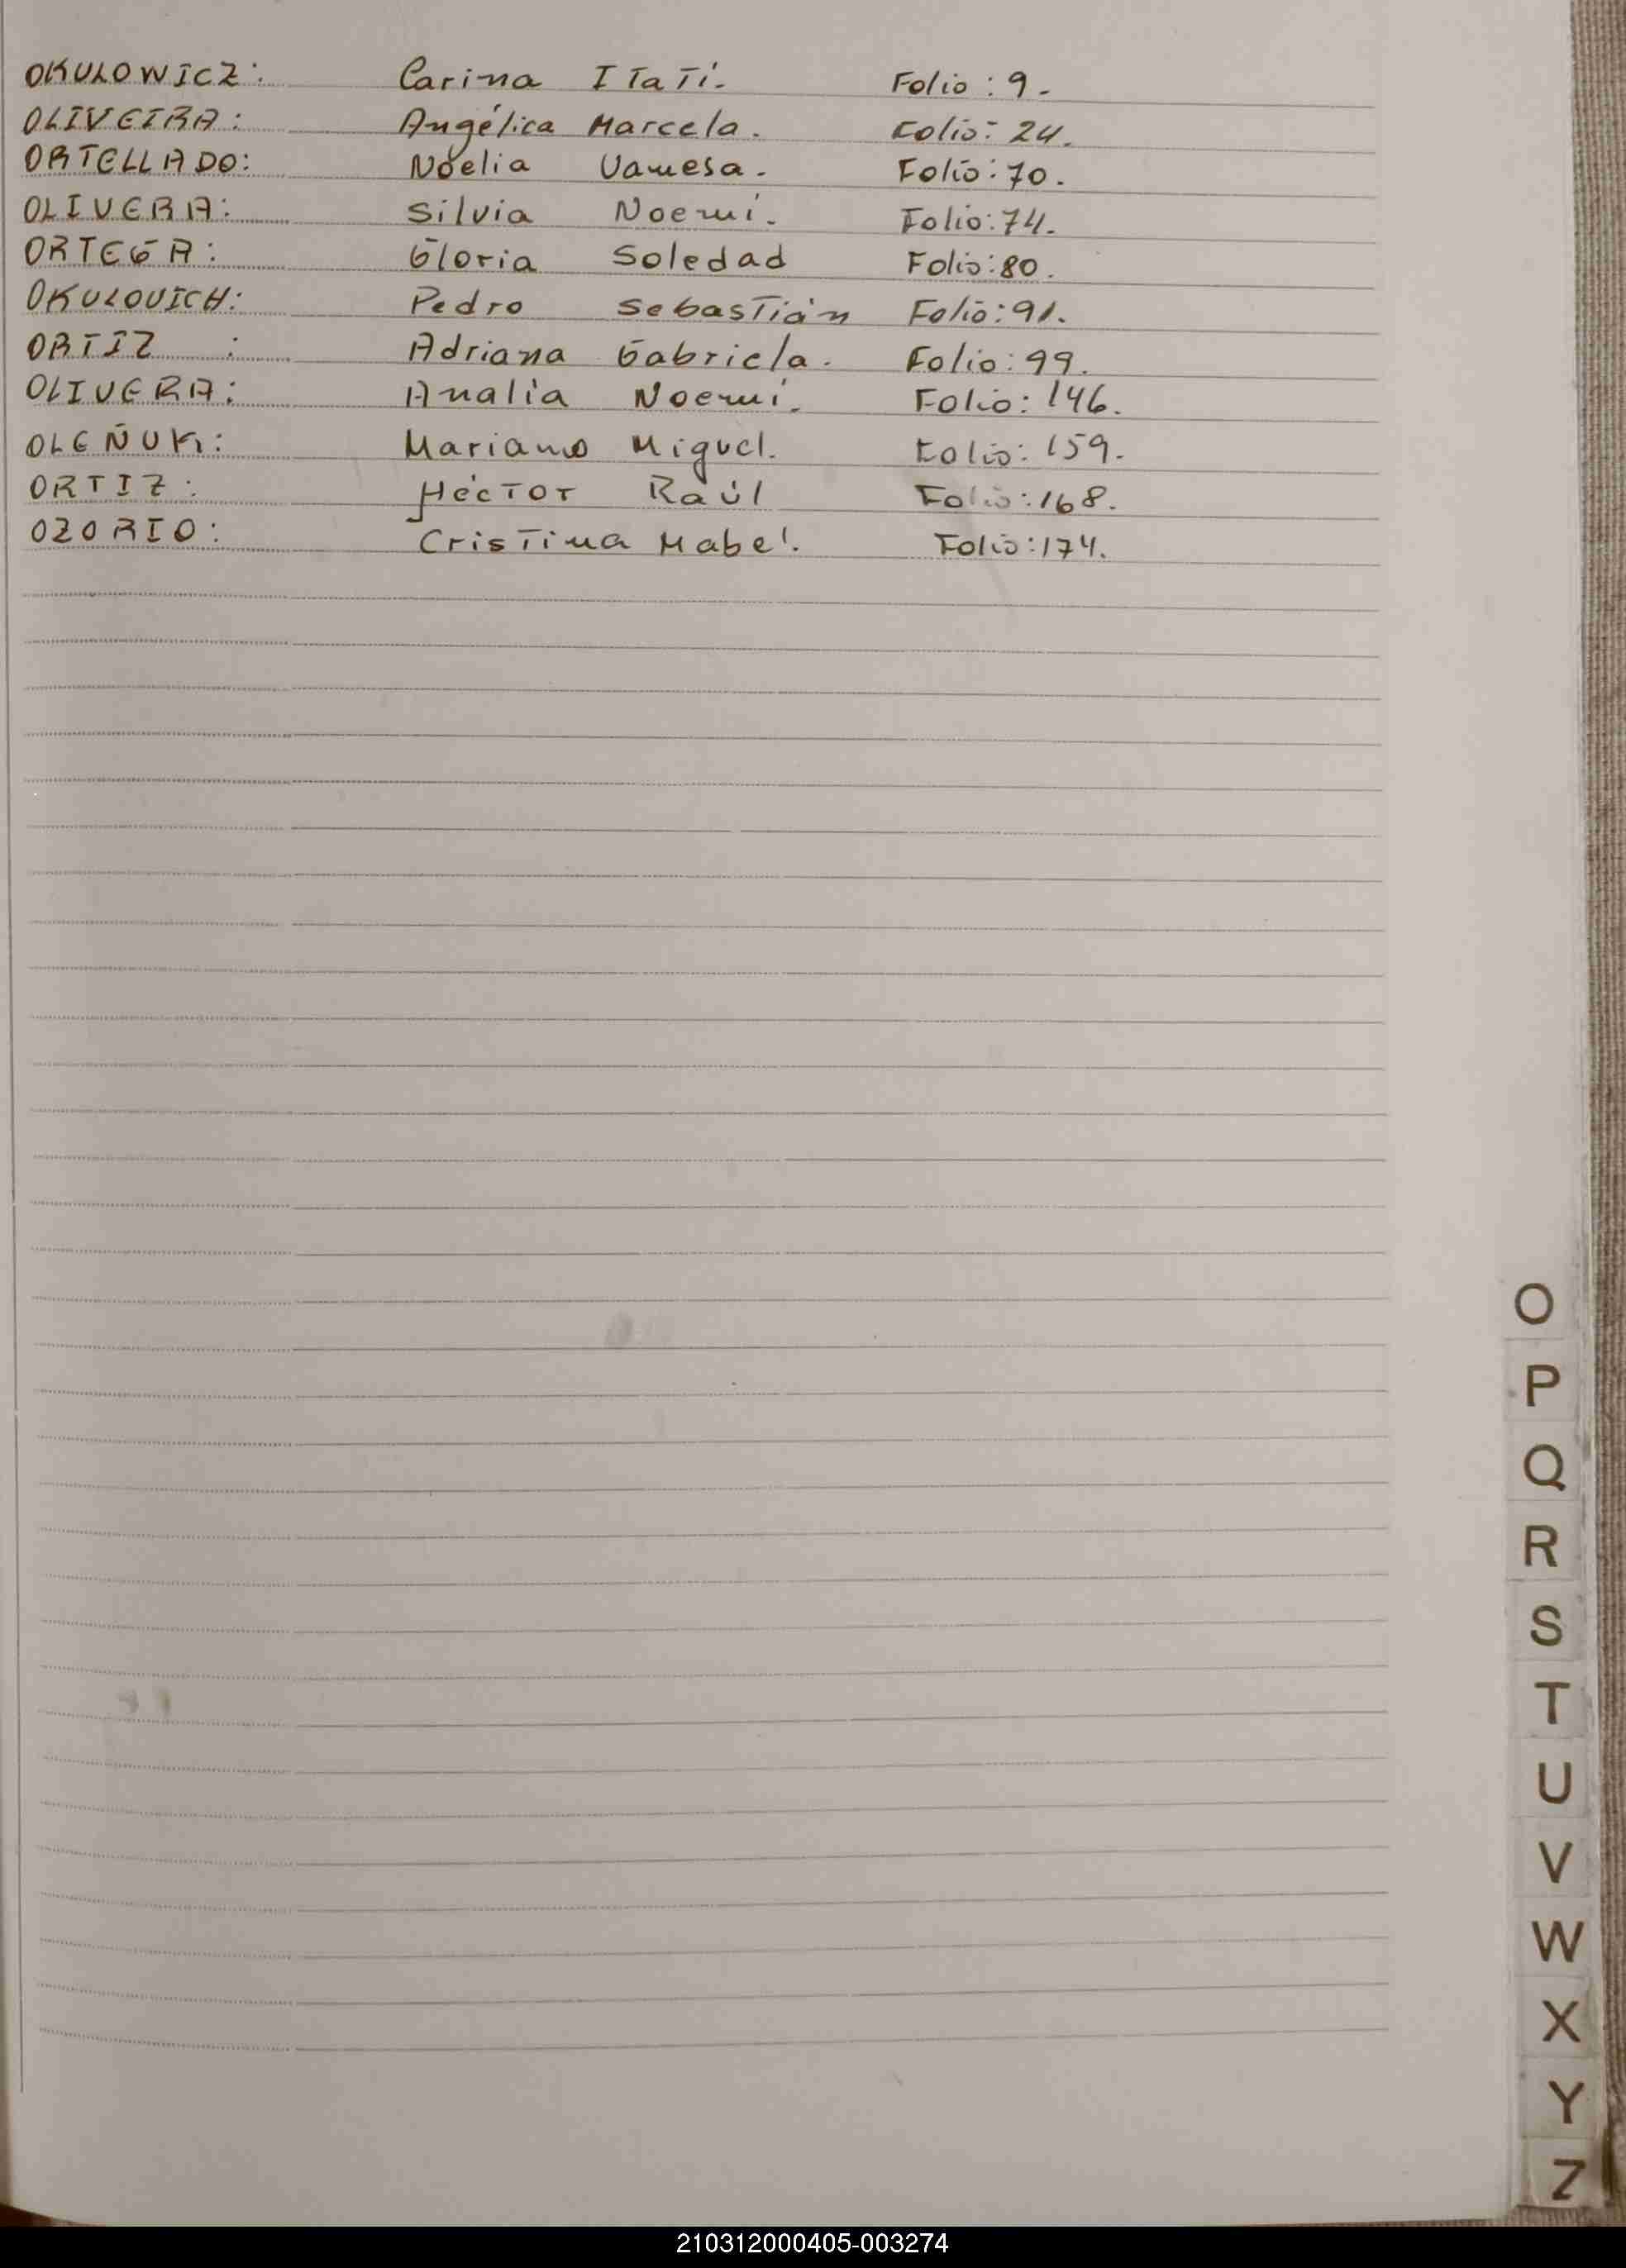 OKULOWICZ: Carina ITaTí. Folio: 9.
OLIVEIRA: Angélica Marcela. Folio: 24.
ORTELLADO: Noelia Vanesa. Folio: 70.
OLIVERA: Silvia Noemí. Folio: 74.
ORTEGA: Gloria Soledad Folio: 80.
OKULOVICH: Pedro SebasTián Folio: 91.
ORTIZ : Adriana Gabriela. Folio: 99.
OLIVERA: Analía Noemí. Folio: 146.
OLEÑUK: Mariano Miguel. Folio: 159.
ORTIZ: HécTor Raúl Folio: 168.
OZORIO: CrisTina Mabel. Folio: 174.
O
P
Q
R
S
T
U
V
W
X
Y
Z
210312000405-003274